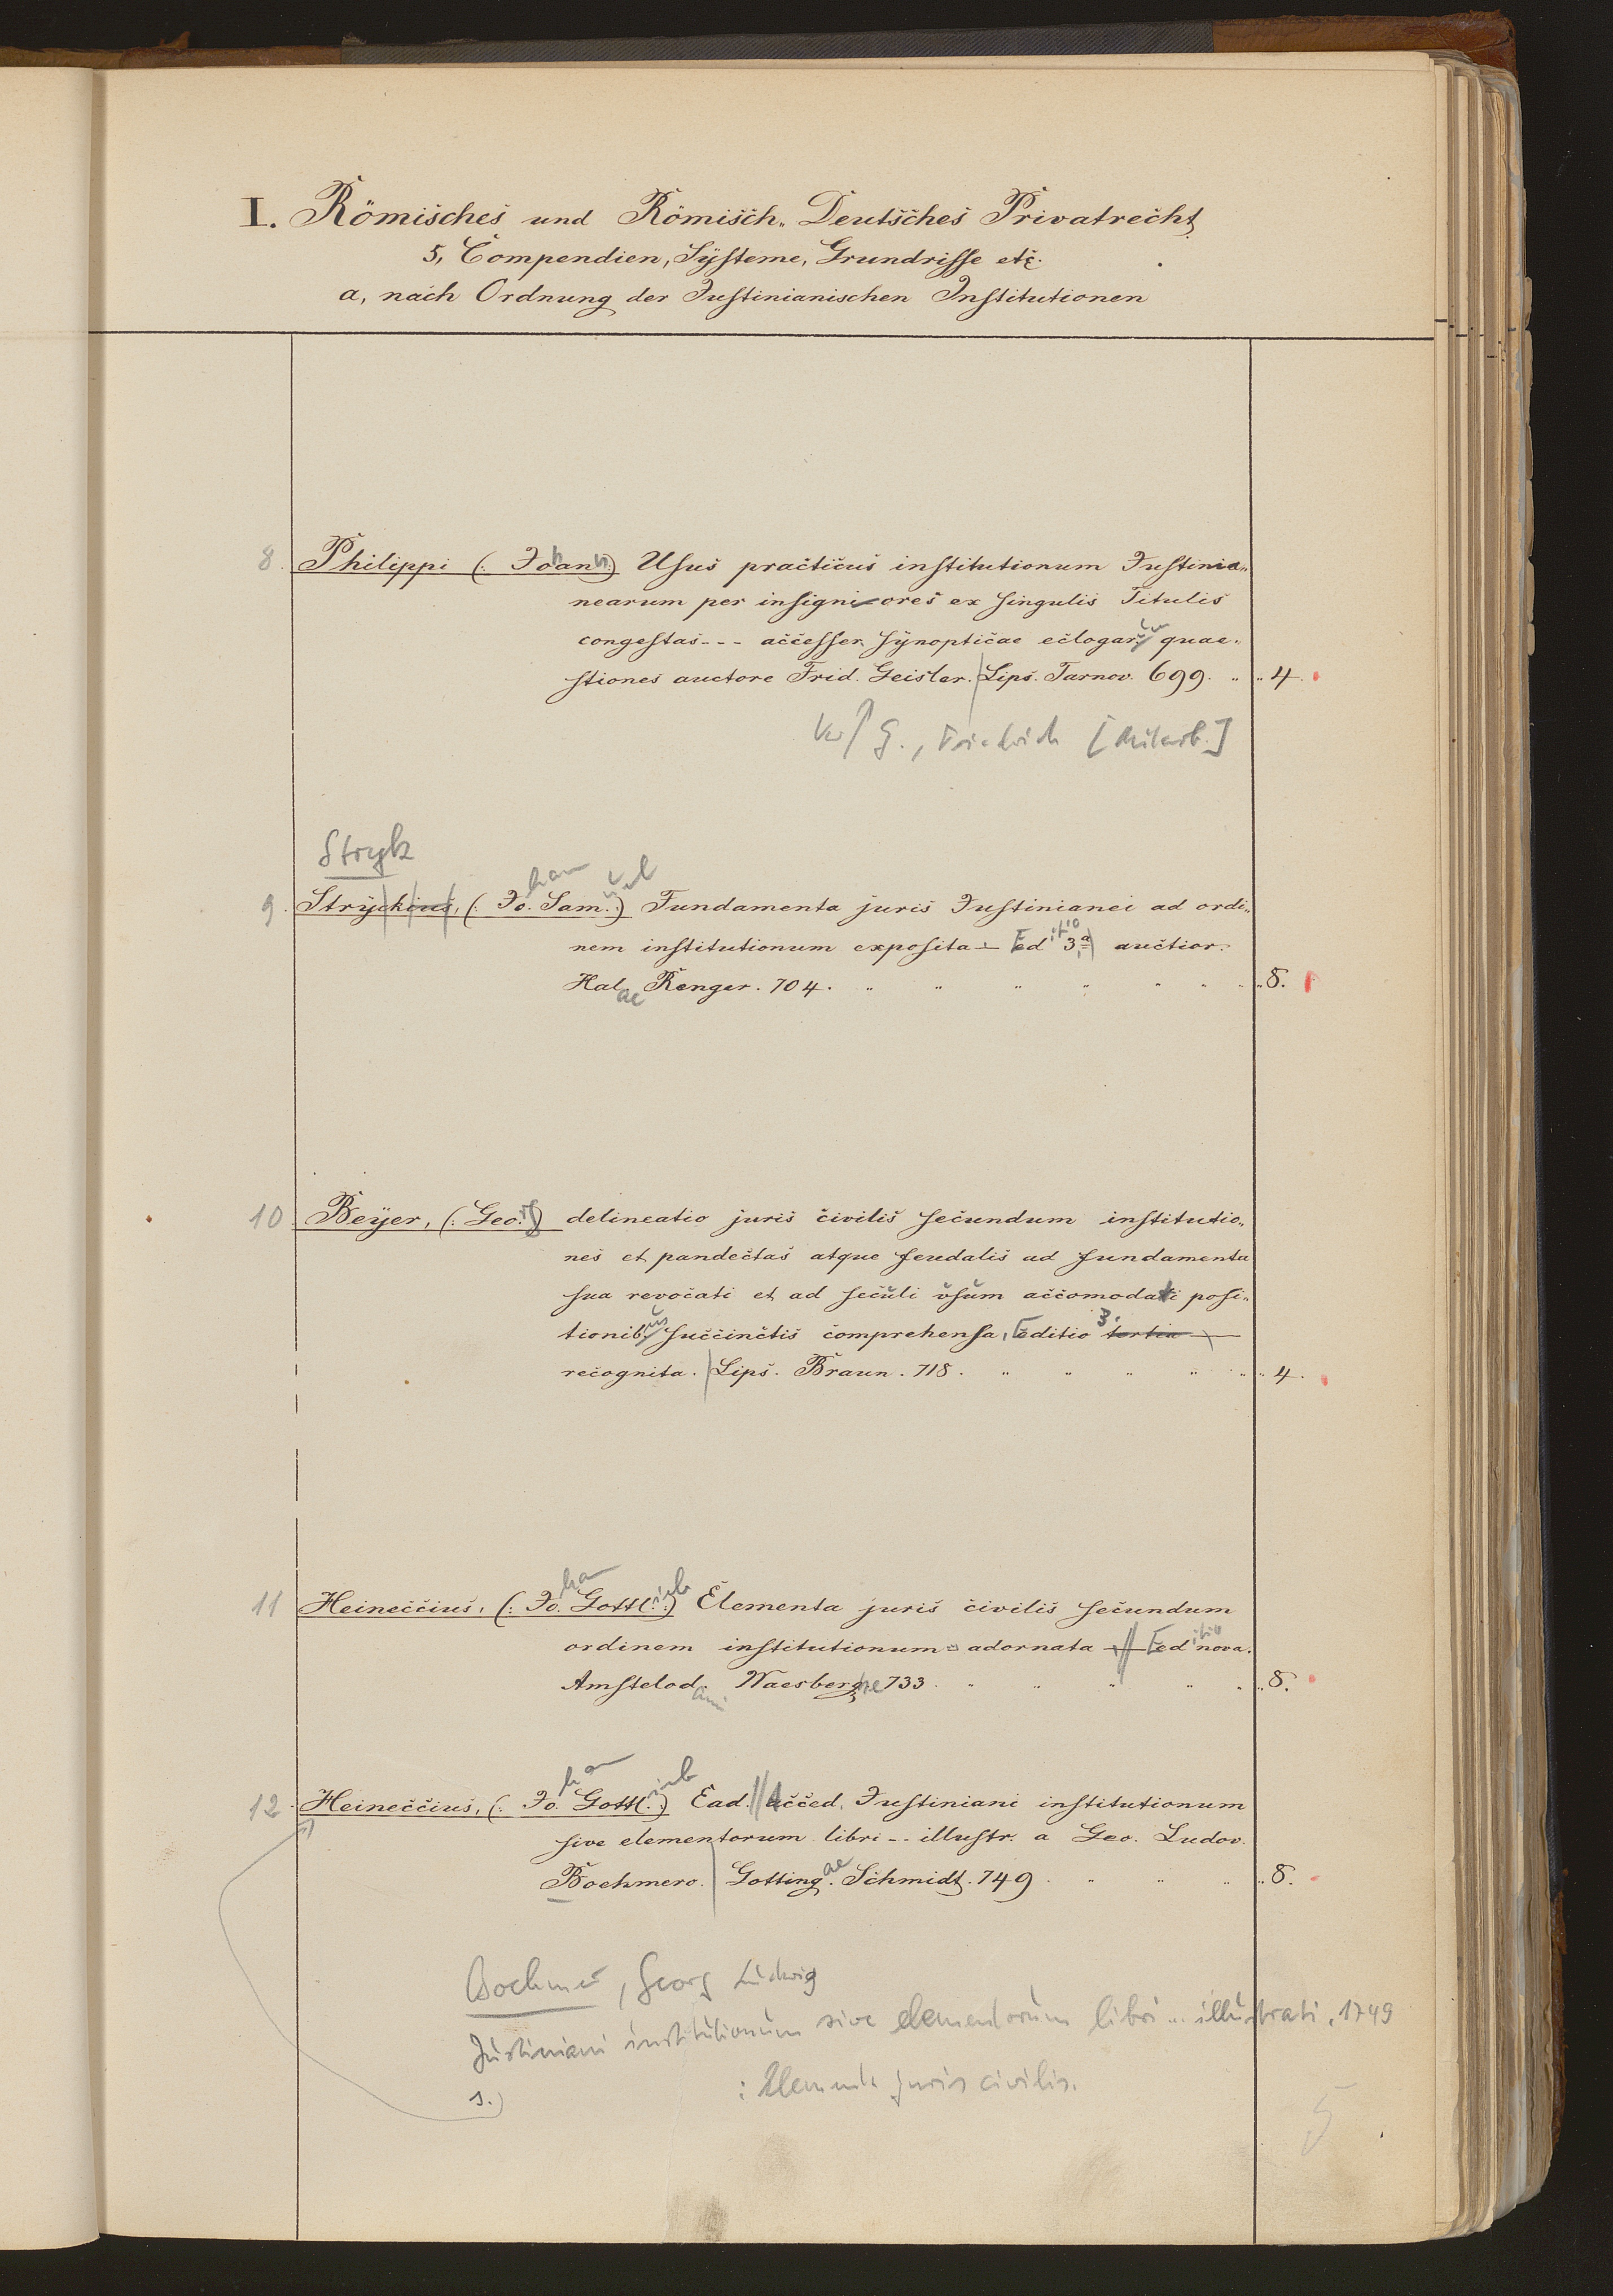 I. Römisches und Römisch-Deutsches Privatrecht
5, Compendien, Systeme, Grundrisse etc.
a, nach Ordnung der Justinianischen Institutionen
8. Philippi (: Johann :) Usus practicus institutionum Justinia-
nearum per insigniores ex singulis Titulis
congestas --- accesser. synopticae eclogarum quae-
stiones auctore Frid. Geisler. Lips. Tarnov. 699. 4.
G., Friedrich [Mitarb.]
Stryk
9. Stryckius, (: Johan Samuel :) Fundamenta juris Justinianei ad ordi-
nem institutionum exposita - Editio 3,a auctior.
Halae Renger. 704. 8.
10. Beÿer, (: Georg :) delineatio juris civilis secundum institutio-
nes et pandectas atque feudalis ad fundamenta
sua revocati et ad seculi usum accomodati posi-
tionibus succinctis comprehensa, Editio 3. tertia
recognita. Lips. Braun. 718. 4.
11 Heineccius, (: Johan Gottlieb :) Elementa juris civilis secundum
ordinem institutionum adornata - Editio nova.
Amstelodami Waesberge 733. 8.
12. Heineccius, (: Johan Gottlieb :) Ead. Acced. Justiniani institutionum
sive elementorum libri -- illustr. a Geo. Ludov.
Boehmero. Gottingae. Schmidt. 749. 8.
Boehmer, Georg Ludwig
Justiniani institutionum sive elementorum libri ... illustrati. 1749
s. : Elementa juris civilis.
5